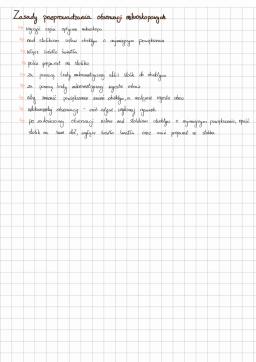 Zasady przeprowadzania obserwacji mikroskopowych
↳ oczyść części optyczne mikroskopu
↳ nad stolikiem ustaw obiektyw o najmniejszym powiększeniu
↳ włącz światło
↳ połóż preparat na stoliku
↳ za pomocą śruby makrometrycznej zbliż stolik do obiektywu
↳ za pomocą śruby mikrometrycznej wyostrz obraz
↳ aby zmienić powiększenie zmień obiektyw, a następnie wyostrz obraz
↳ obserwacji
↳ po zakończonej obserwacji ustaw nad stolikiem obiektyw o najmniejszym powiększeniu, opuść
stolik na sam dół, wyłącz światło oraz zdejmij preparat ze stolika